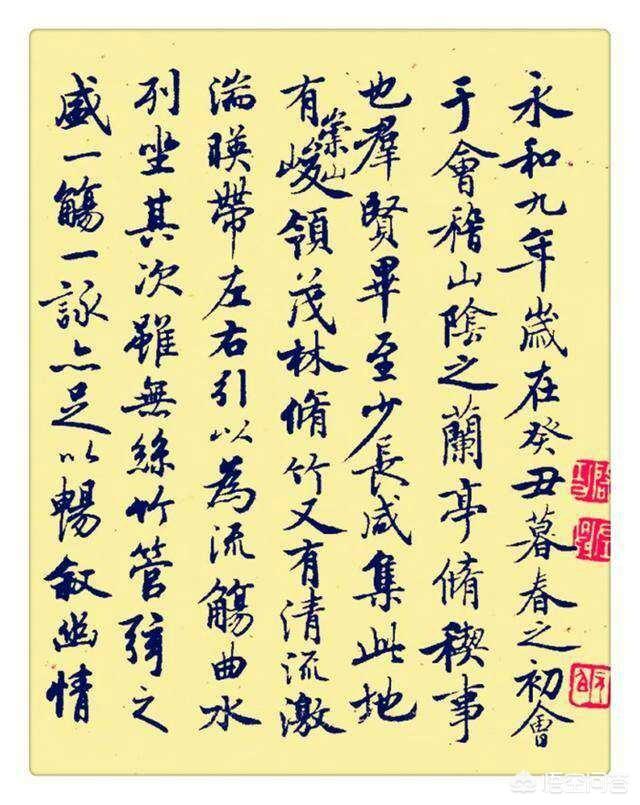 永和九年歲在癸丑暮春之初會
于會稽山陰之蘭亭脩稧事
也羣賢畢至少長咸集此地
有崇山峻領茂林脩竹又有清流激
湍暎帶左右引以為流觴曲水
列坐其次雖無絲竹管弦之
盛一觴一詠亦足以暢敘幽情
悟空问答